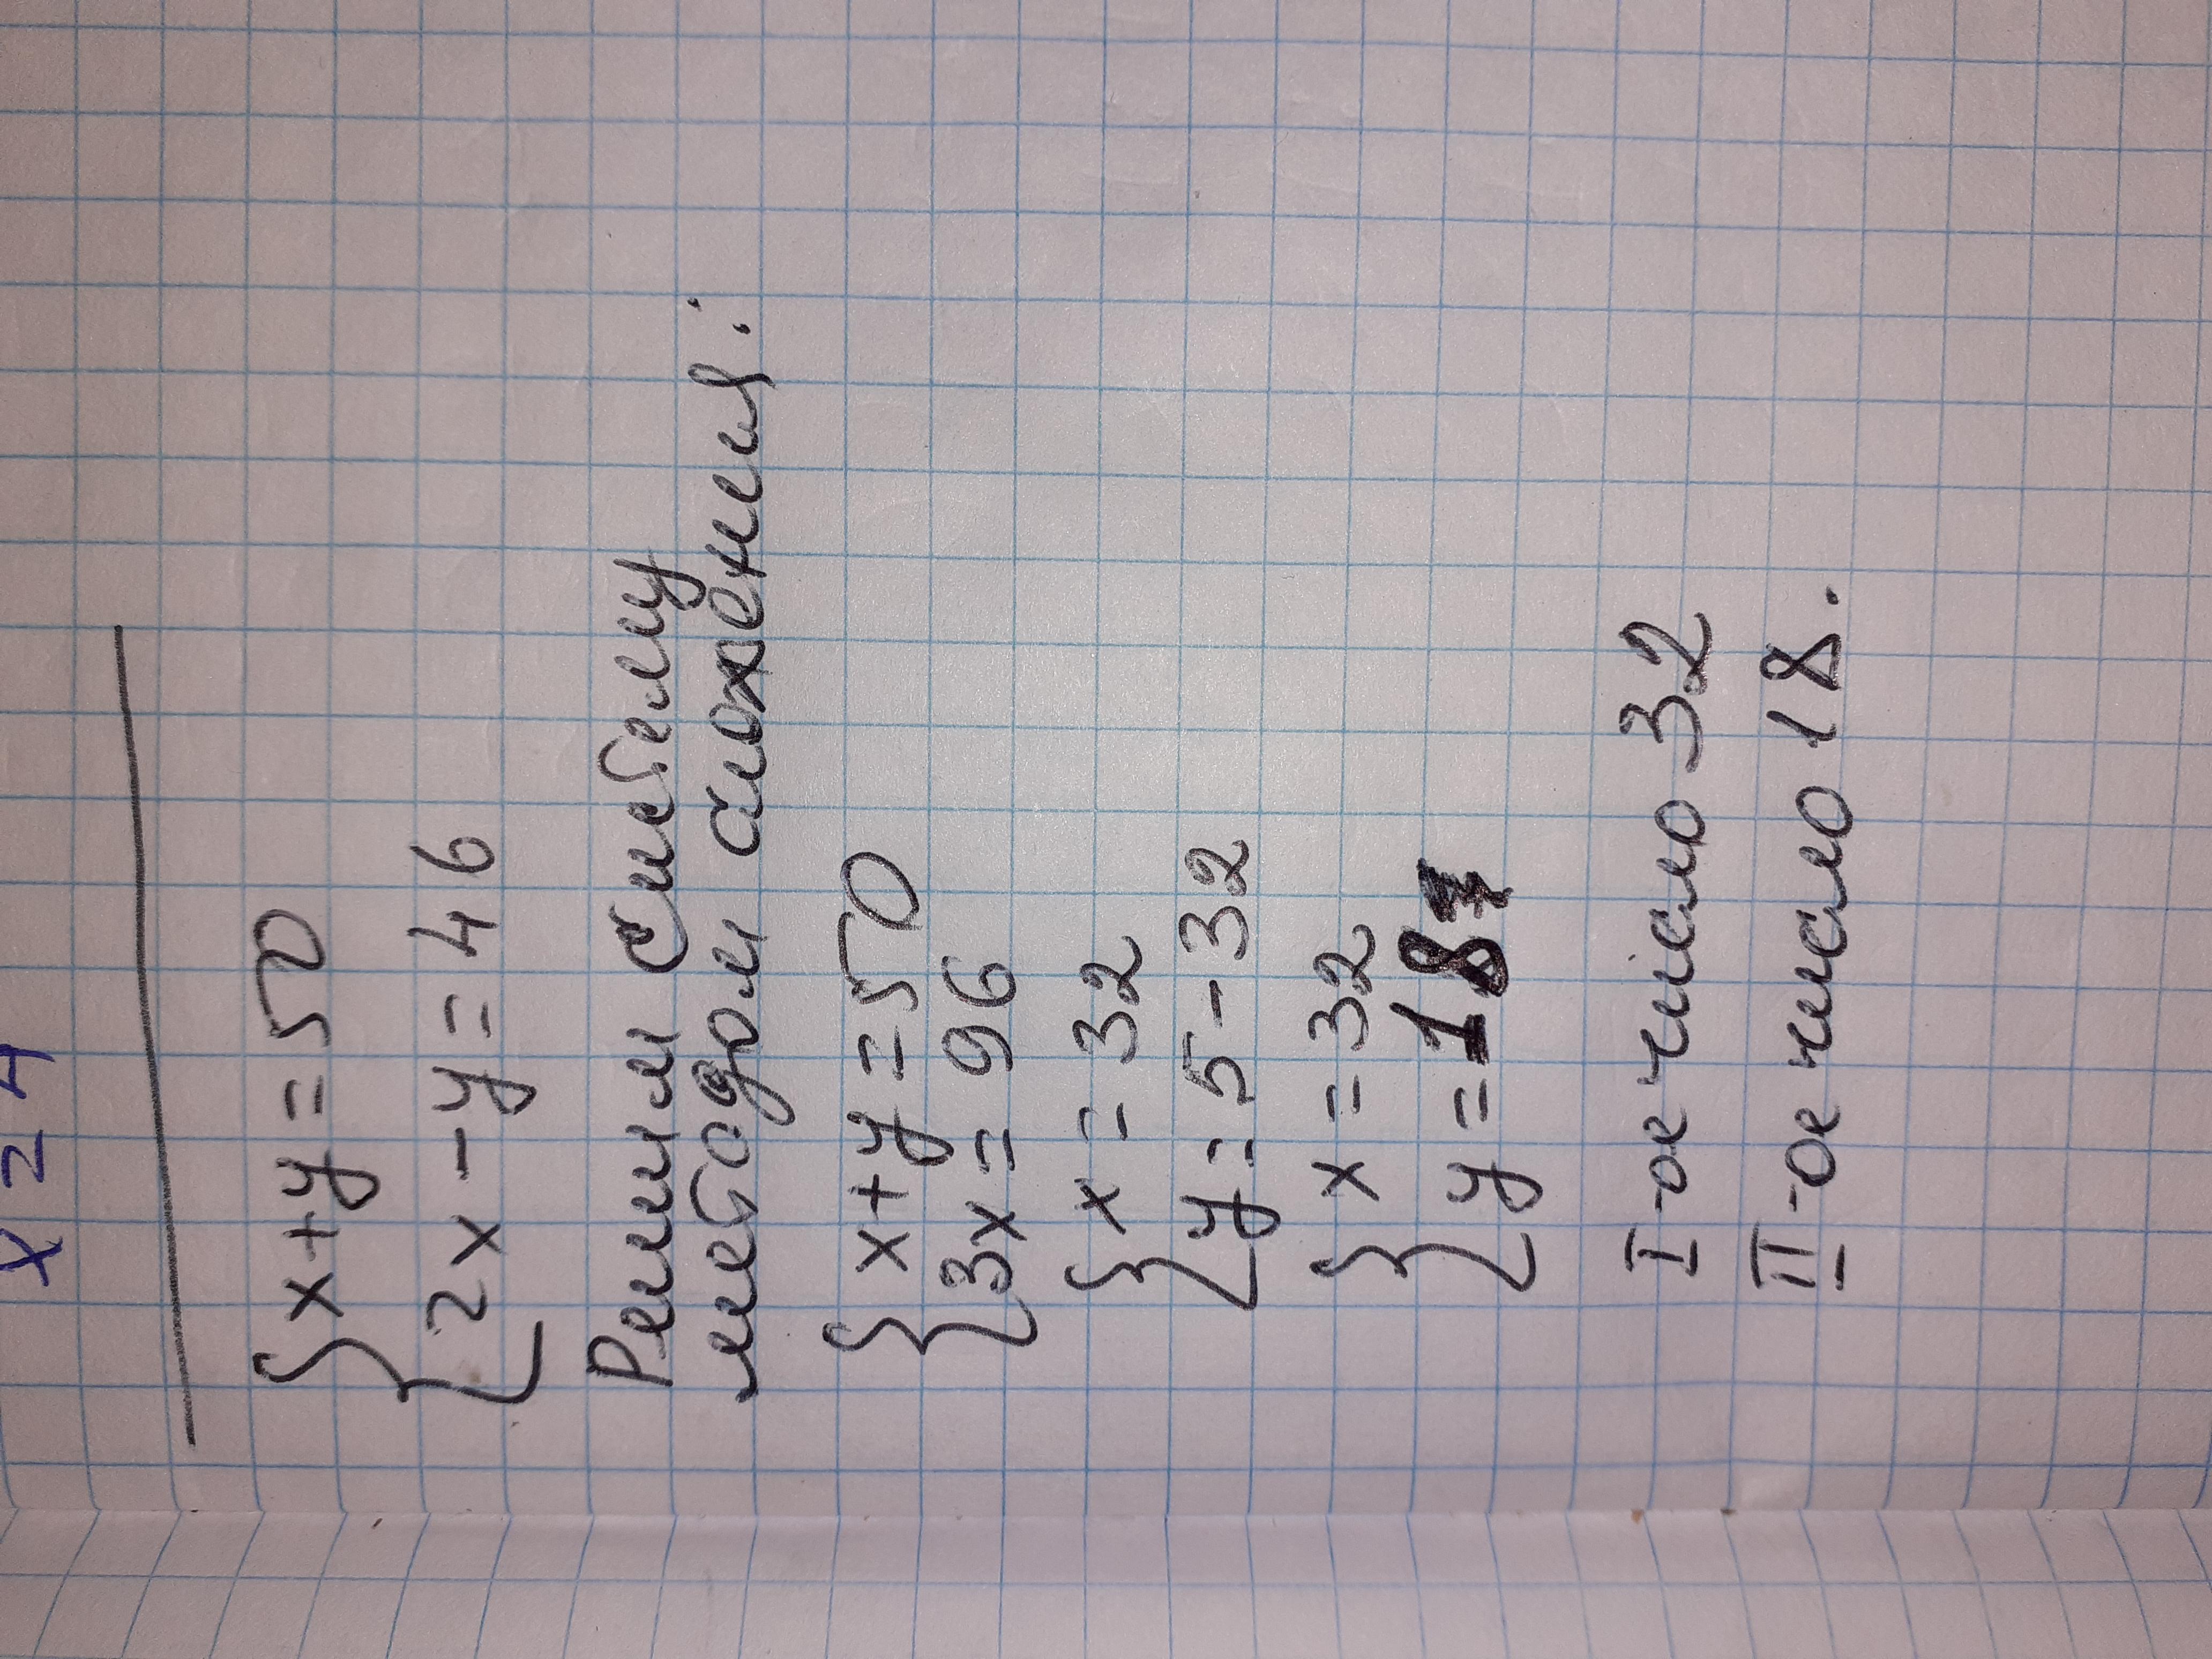 x = 4
{ x + y = 50
2x - y = 46
Решим систему
методом сложения:
{ x + y = 50
3x = 96
{ x = 32
y = 5 - 32
{ x = 32
y = 18
I-ое число 32
II-ое число 18.